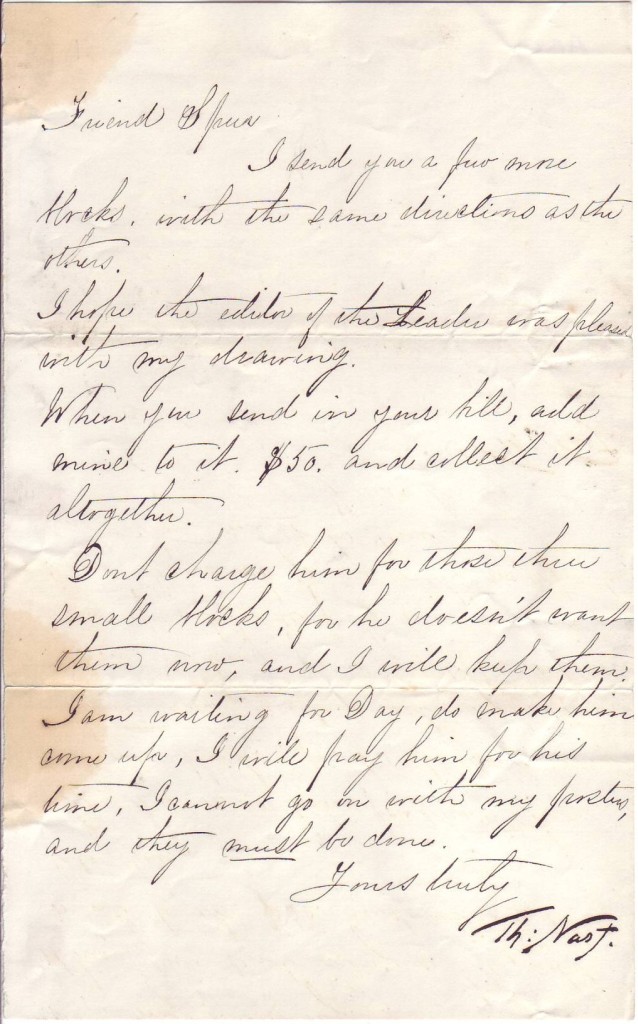 Friend Speer
I send you a few more
blocks. with the same directions as the
others.
I hope the editor of the Leader was pleased
with my drawing.
When you send in your bill, add
mine to it. $50. and collect it
altogether.
Dont charge him for those three
small blocks, for he doesn't want
them now, and I will keep them.
I am waiting for Day, do make him
come up, I will pay him for his
time, I cannot go on with my posters,
and they must be done.
Yours truly
Th: Nast.